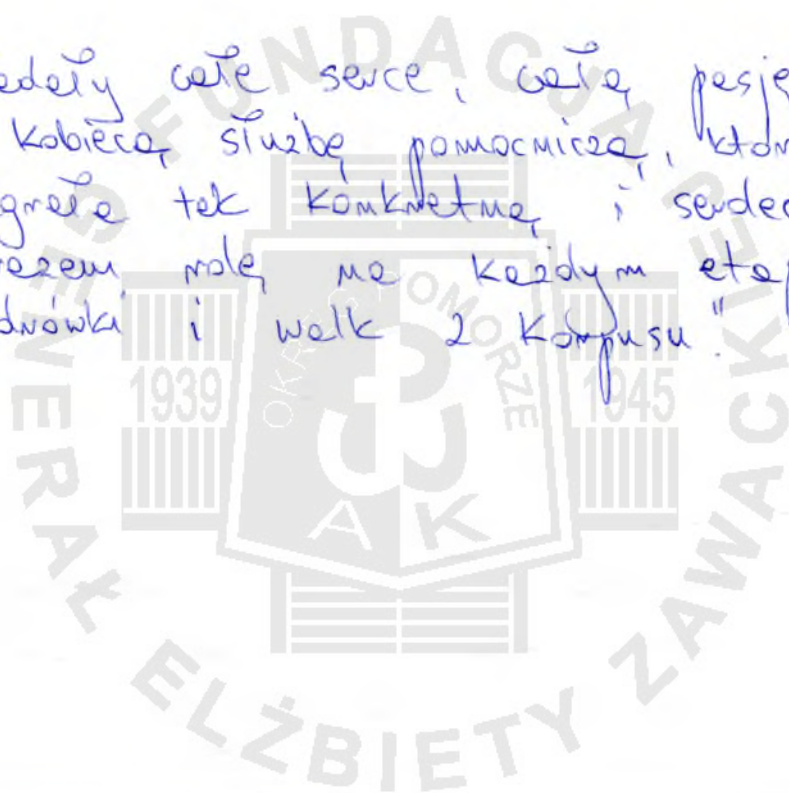 edały całe serce, całą pasję
kobiecą służbę pomocniczą, któr
grała tak konkretną i serdec
razem rolę na każdym etap
drówki i walk 2 Korpusu."
FUNDACJA
GENERAŁ ELŻBIETY ZAWACKIE
OKRĘG POMORZE
1939
1945
AK